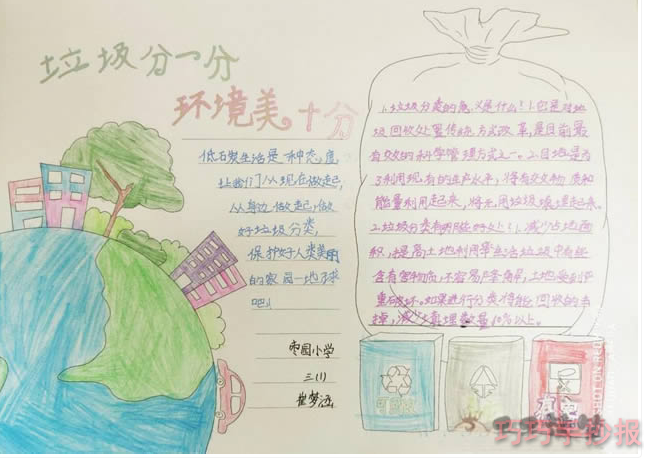 垃圾分一分
环境美十分
低石炭生活是一种态度,
让我们从现在做起,
从身边做起,做
好垃圾分类,
保护好人类美丽
的家园一地球
吧!
枣园小学
三(1)
崔梦涵
1.垃圾分类的意义是什么!1.它是对垃
圾回收处置传统方式改革,是目前最
有效的科学管理方式之一。2.目地是为
了利用现有的生产水平,将有交文物质和
能量利用起来,将无用垃圾填埋起来。
2.垃圾分类有明显好处!!减少占地面
积,提高土地利用率生活垃圾中有些
含有害物质,不容易降解,土地受到严
重破坏,如果进行分类将能回收的去
掉,减少填埋数量60%以上。
可回收
有害
巧巧手抄报